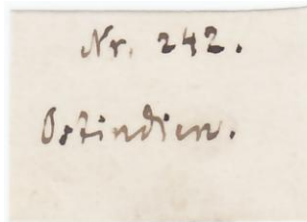 Nr. 242.
Ostindien.